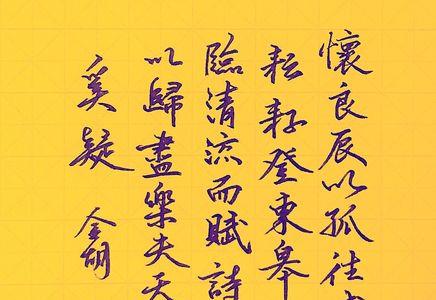 懷良辰以孤往
耘耔登東皋
臨清流而賦詩
以歸盡樂夫天
奚疑
金胡